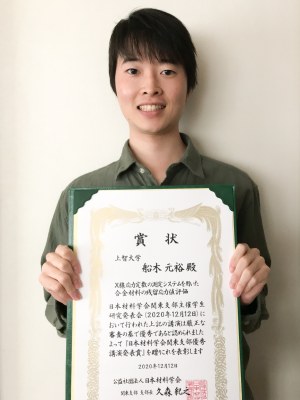 賞状
上智大学
船木 元裕 殿
X線応力定数の測定システムを用いた
合金材料の残留応力値評価
日本材料学会関東支部主催学生
研究発表会(2020年12月12日)に
おいて行われた上記の講演は厳正な
審査の基で優秀であると認められました
よって「日本材料学会関東支部優秀
講演発表賞」を贈られを表彰します
2020年12月12日
公益社団法人日本材料学会
関東支部 支部長